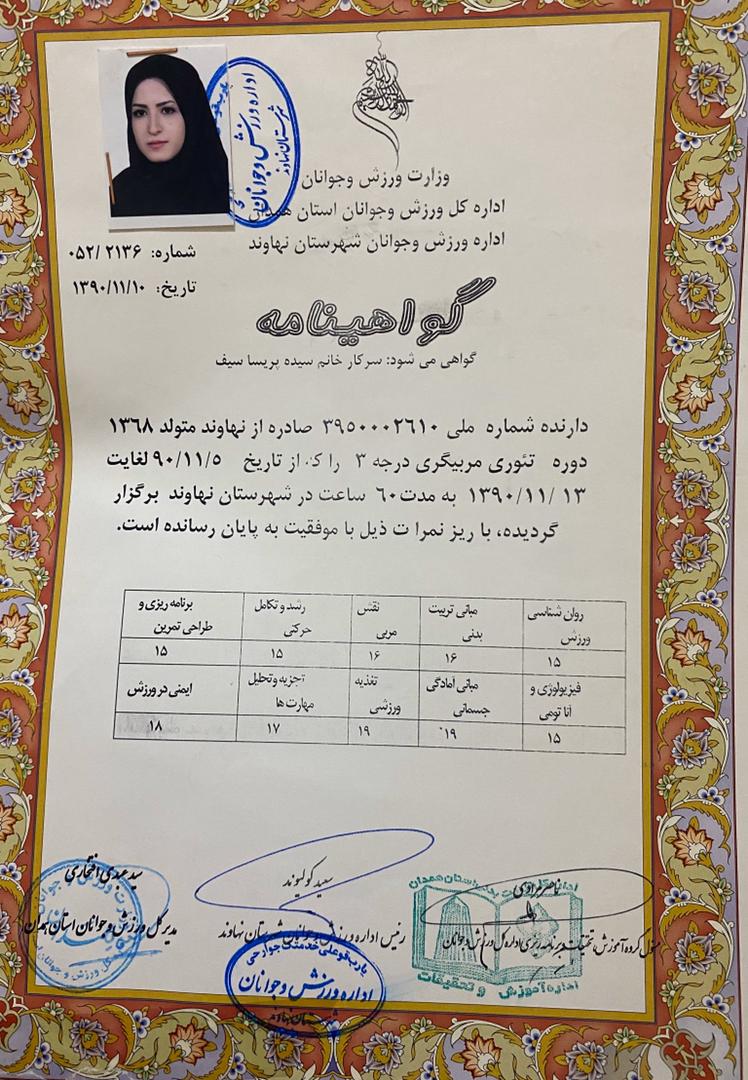 وزارت ورزش وجوانان
اداره کل ورزش وجوانان استان همدان
اداره ورزش وجوانان شهرستان نهاوند
اداره ورزش وجوانان
شهرستان نهاوند
شماره: ۰۵۲/ ۲۱۳۶
تاریخ: ۱۳۹۰/۱۱/۱۰
گواهینامه
گواهی می شود: سرکار خانم سیده پریسا سیف
دارنده شماره ملی ۳۹۵۰۰۰۲۶۱۰ صادره از نهاوند متولد ۱۳۶۸
دوره تئوری مربیگری درجه ۳ را که از تاریخ ۹۰/۱۱/۵ لغایت
۱۳۹۰/۱۱/ ۱۳ به مدت ۶۰ ساعت در شهرستان نهاوند برگزار
گردیده، با ریز نمرا ت ذیل با موفقیت به پایان رسانده است.
روان شناسی ورزش | مبانی تربیت بدنی | نقش مربی | رشد و تکامل حرکتی | برنامه ریزی و طراحی تمرین
۱۵ | ۱۶ | ۱۶ | ۱۵ | ۱۵
فیزیولوژی و آنا تومی | مبانی امادگی جسمانی | تغذیه ورزشی | تجزیه وتحلیل مهارت ها | ایمنی در ورزش
۱۵ | ۱۹ | ۱۹ | ۱۷ | ۱۸
سعید کولیوند
رئیس اداره ورزش وجوانان شهرستان نهاوند
سید عبدی افتخاری
مدیر کل ورزش و جوانان استان همدان
مسئول گروه آموزش، تحقیقات و برنامه ریزی اداره کل ورزش وجوانان
اداره ورزش وجوانان
شهرستان نهاوند
اداره آموزش و تحقیقات